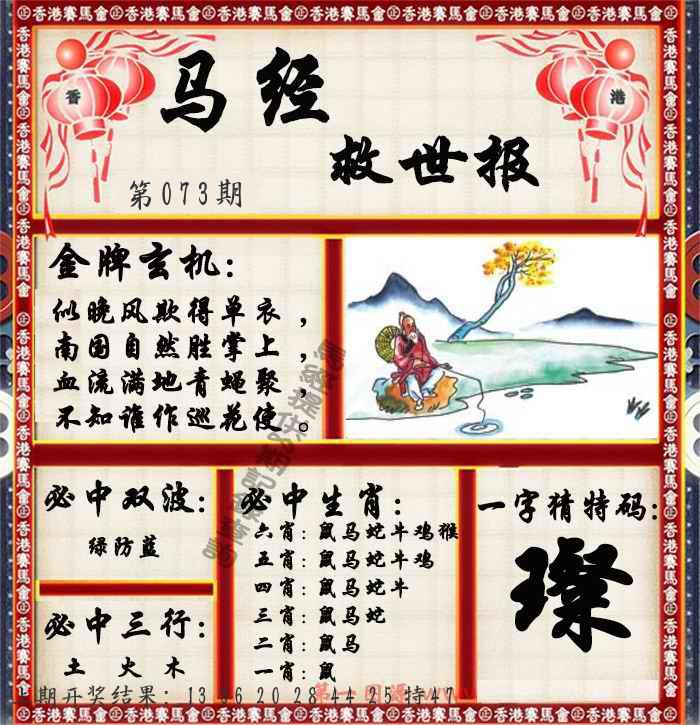 香港賽馬會
香
港
马经
救世报
第073期
金牌玄机:
似晚风欺得单衣，
南国自然胜掌上，
血流满地青蝇聚，
不知谁作巡花使。
必中双波:
绿防蓝
必中三行:
土 火 木
必中生肖:
六肖: 鼠马蛇牛鸡猴
五肖: 鼠马蛇牛鸡
四肖: 鼠马蛇牛
三肖: 鼠马蛇
二肖: 鼠马
一肖: 鼠
一字猜特码:
璨
期开奖结果: 13 06 20 28 44 25 特47